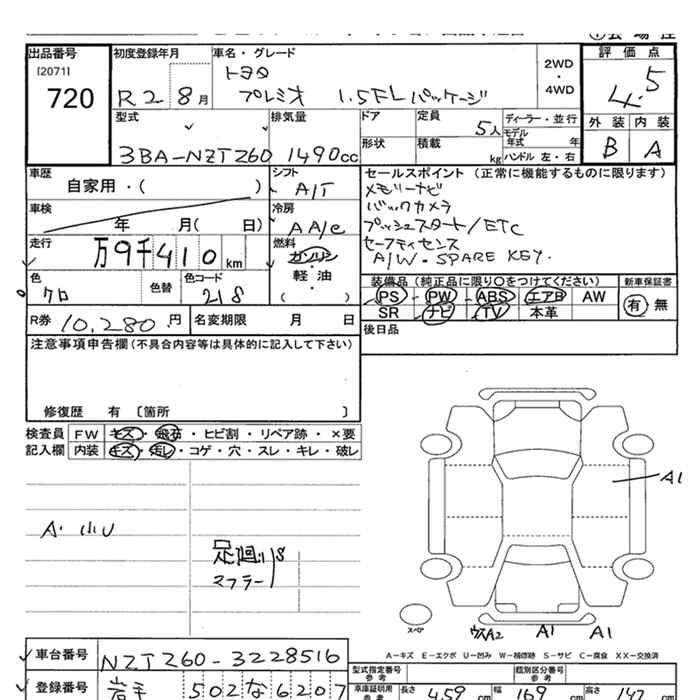 出品番号 初度登録年月 車名・グレード 評価点
[2071] トヨタ 2WD
720 R2 8月 プレミオ 1.5FLパッケージ ・ 4.5
4WD
型式 排気量 ドア 定員 ディーラー・並行 外装 内装
5人 モデル
年式 年
3BA-NZT260 1490cc 形状 積載 kg ハンドル 左・右 B A
車歴 シフト セールスポイント (正常に機能するものに限ります)
自家用・( ) A/T メモリーナビ
車検 冷房 バックカメラ
年 月( 日) AA/c プッシュスタート/ETC
走行 燃料 セーフティセンス
万9千410km ガソリン A/W・SPARE KEY.
軽・油
色 色替 色コード ( ) 装備品 (純正品に限り○をつけてください) 新車保証書
クロ 218 PS PW ABS エアB AW 有 無
SR ナビ TV 本革
R券 10,280円 名変期限 月 日 後日品
注意事項申告欄(不具合内容等は具体的に記入して下さい)
修復歴 有 〔箇所 〕
検査員 FW キズ・飛石・ヒビ割・リペア跡・×要
記入欄 内装 キズ・汚レ・コゲ・穴・スレ・キレ・破レ
A1
A・小U
足廻り S
マフラー
スペア
A2 A1 A1
A-キズ E-エクボ U-凹み W-補修跡 S-サビ C-腐食 XX-交換済
車台番号 NZT260-3228516
型式指定番号 類別区分番号
参考 参考
登録番号 岩手 502な6207
車庫証明用 長さ 459cm 幅 169cm 高さ 147cm
参考